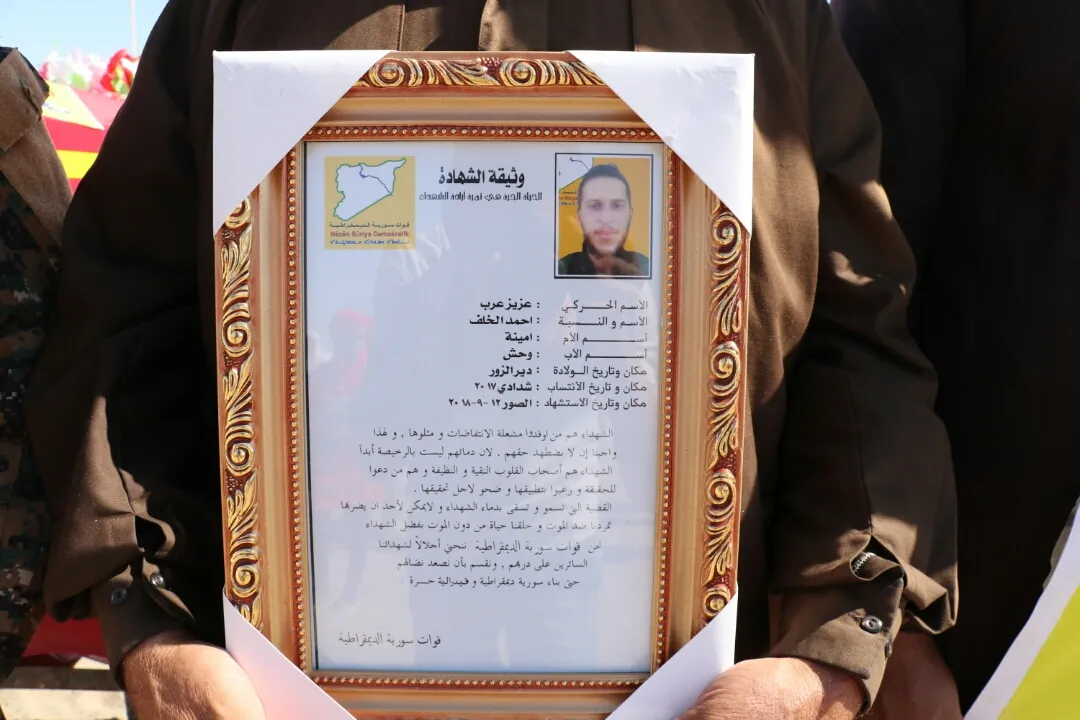 وثيقة الشهادة
الحياة الحرة هي ثمرة أبادة الشهداء
قوات سورية الديمقراطية
Hêzên Sûriya Demokratîk
الاسم الحركي : عزيز عرب
الاسم و النسبة : احمد الخلف
اسم الأم : امينة
اسم الأب : وحش
مكان وتاريخ الولادة : ديرالزور
مكان و تاريخ الأنتساب : شدادي ٢٠١٧
مكان وتاريخ الاستشهاد : الصور ١٢-٩-٢٠١٨
الشهداء هم من اوقدوا مشعلة الانتفاضات و مثلوها , و لهذا
واجبنا إن لا نضطهد حقهم . لان دمائهم ليست بالرخيصة أبداً
الشهداء هم أصحاب القلوب النقية و النظيفة و هم من دعوا
للحقيقة و رغبوا بتطبيقها و ضحو لاجل تحقيقها .
القضية التي تسمو و تسقى بدماء الشهداء و لايمكن لأحد ان يضرها
تمردنا ضد الموت و خلقنا حياة من دون الموت بفضل الشهداء
نحن قوات سورية الديمقراطية ننحني أجلالاً لشهدائنا
السائرين على دربهم , ونقسم بأن نصعد نضالهم
حتى بناء سورية ديمقراطية و فيدرالية حسرة .
قوات سورية الديمقراطية